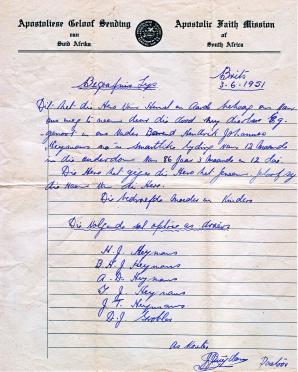 Apostoliese Geloof Sending
van
Suid Afrika
Apostolic Faith Mission
of
South Africa
Brits
3-6-1951
Begrafnis
Dit het die Heer van Hemel en Aarde behaag om
weg te neem deur die dood my dierbare Eg-
genoot en ons Vader Barend Hendrik Johannes
Heymans na 'n smartlike lyding van 12 Maande
in die ouderdom van 86 Jaar 3 Maande en 12 dae.
Die Here het gegee die Here het geneem geloof sy
die Naam van die Here.
Die bedroefde Moeder en Kinders
Die volgende sal optree as draers
H. J. Heymans
B. H. J. Heymans
A. D. Heymans
T. J. Heymans
J. T. Heymans
D. J. Grobler
As Koster
Pastoor